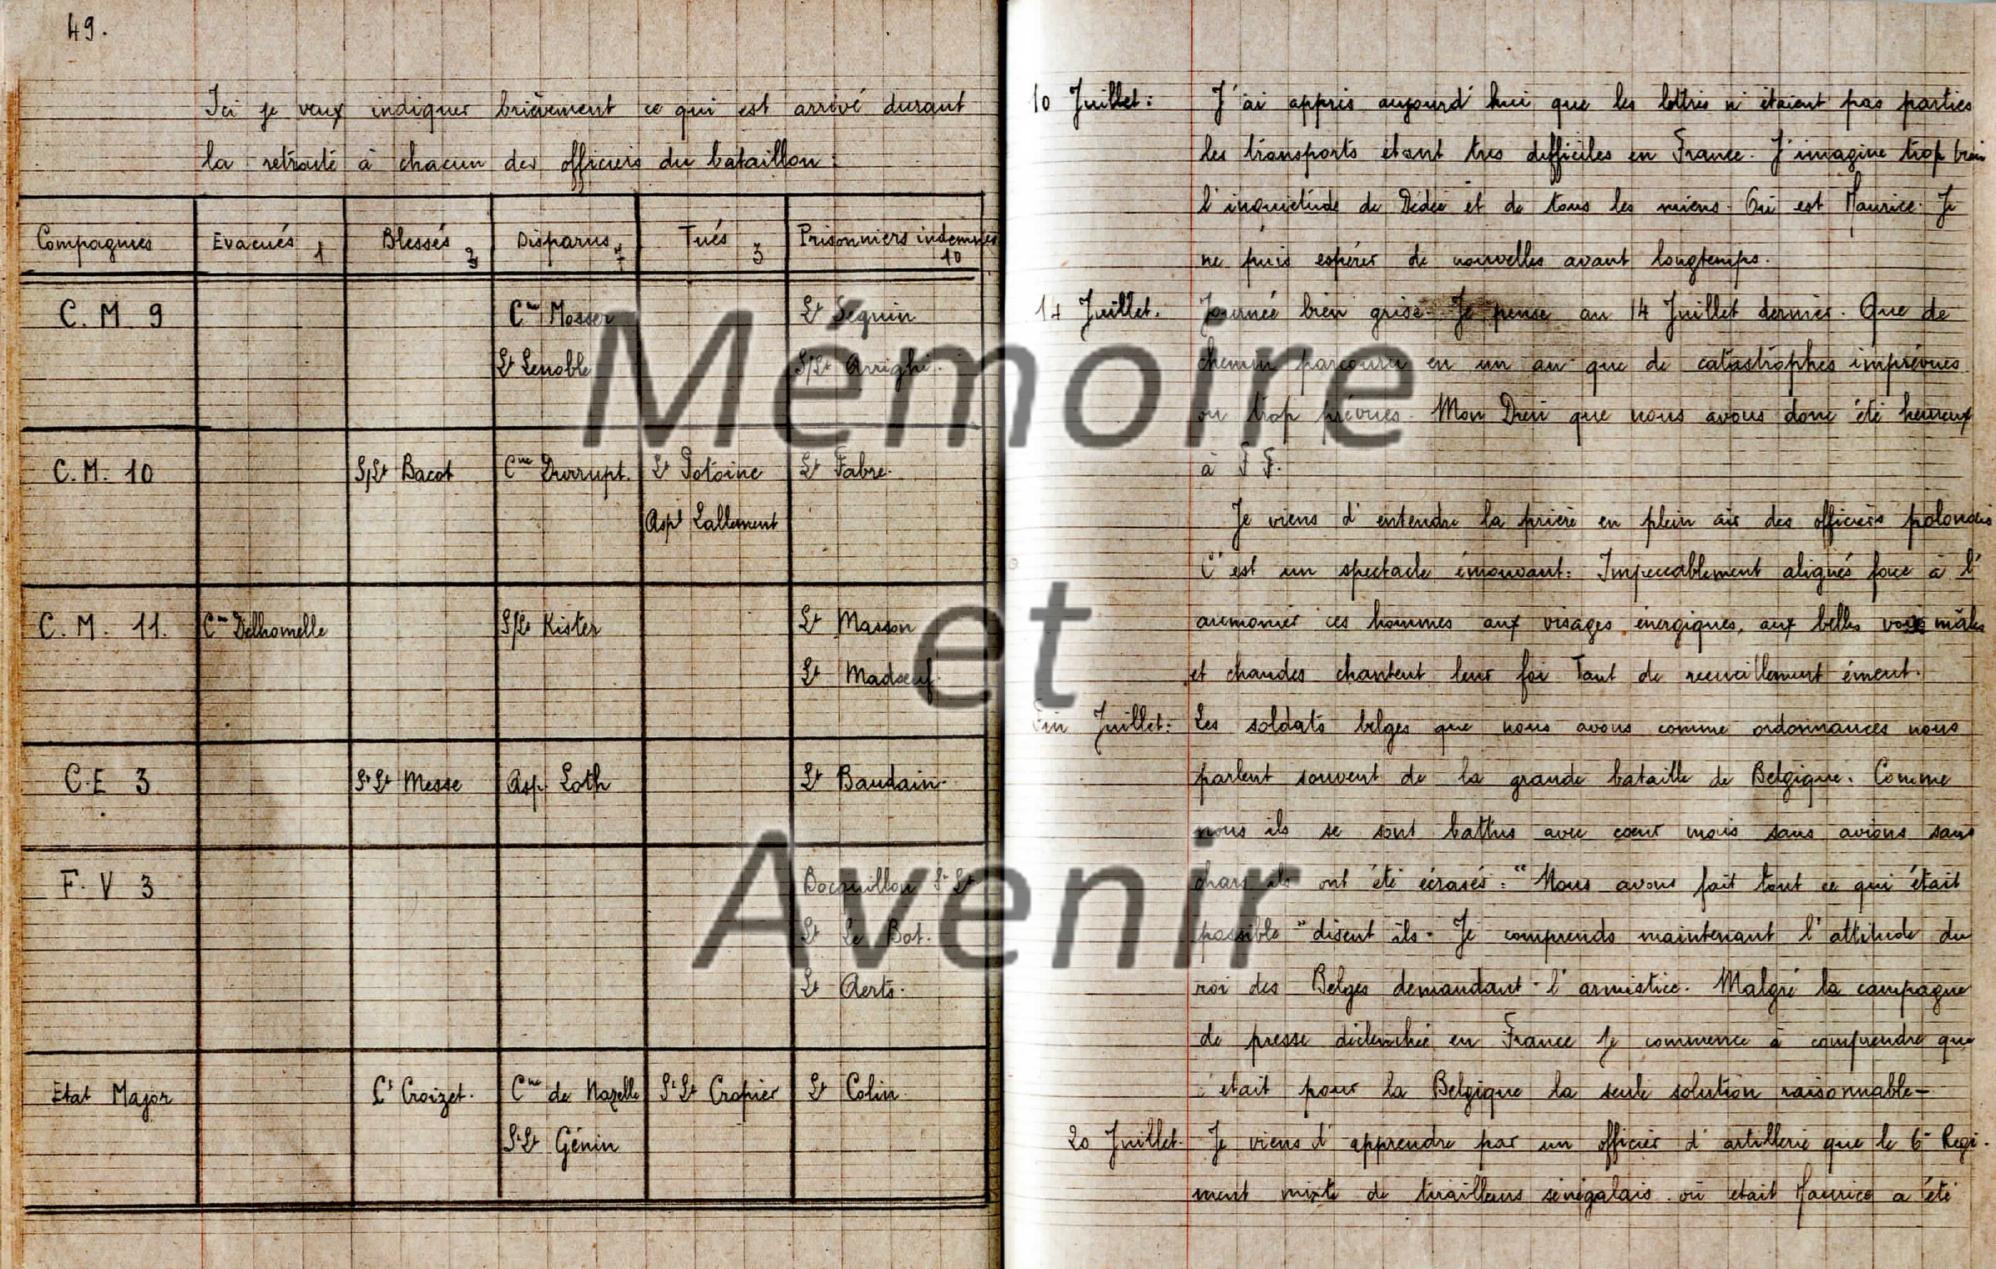 49.
Ici je veux indiquer brièvement ce qui est arrivé durant
la retraite à chacun des officiers du bataillon :
Compagnies Evacués 1 Blessés 3 Disparus 7 Tués 3 Prisonniers indemnes 10
C. M. 9 Cne Mosser Lt Séguin
Lt Lenoble S/Lt Arrighi.
C. M. 10 S/Lt Bacot Cne Durrupt. Lt Potoine Lt Fabre.
Aspt Lallement
C. M. 11. Cne Delhomelle S/Lt Kister Lt Masson
Lt Madoeuf
C. E 3 S/Lt Messe Asp. Loth Lt Baudain.
F. V 3 Bocquillon S/Lt
Lt Le Bot.
Lt Aerts.
Etat Major Lt Croizet. Cne de Nazelle S/Lt Cropier Lt Colin.
S/Lt Génin
10 Juillet : J'ai appris aujourd'hui que les lettres n'étaient pas parties
les transports étant très difficiles en France. J'imagine trop bien
l'inquiétude de Dédée et de tous les miens. Où est Maurice. Je
ne puis espérer de nouvelles avant longtemps.
14 Juillet. Journée bien grise. Je pense au 14 Juillet dernier. Que de
chemin parcouru en un an que de catastrophes imprévues
ou trop prévues. Mon Dieu que nous avons donc été heureux
à F F.
Je viens d'entendre la prière en plein air des officiers polonais
C'est un spectacle émouvant : Impeccablement alignés face à l'
aumonier ces hommes aux visages énergiques, aux belles voix mâles
et chaudes chantent leur foi Tant de recueillement émeut.
Fin Juillet : Les soldats belges que nous avons comme ordonnances nous
parlent souvent de la grande bataille de Belgique. Comme
nous ils se sont battus avec coeur mais sans avions sans
chars ils ont été écrasés : "Nous avons fait tout ce qui était
possible" disent ils. Je comprends maintenant l'attitude du
roi des Belges demandant l'armistice. Malgré la campagne
de presse déclenchée en France je commence à comprendre que
c'était pour la Belgique la seule solution raisonnable -
20 Juillet. Je viens d'apprendre par un officier d'artillerie que le 6e Regi-
ment mixte de tirailleurs sénégalais où était Maurice a été
Mémoire
et
Avenir